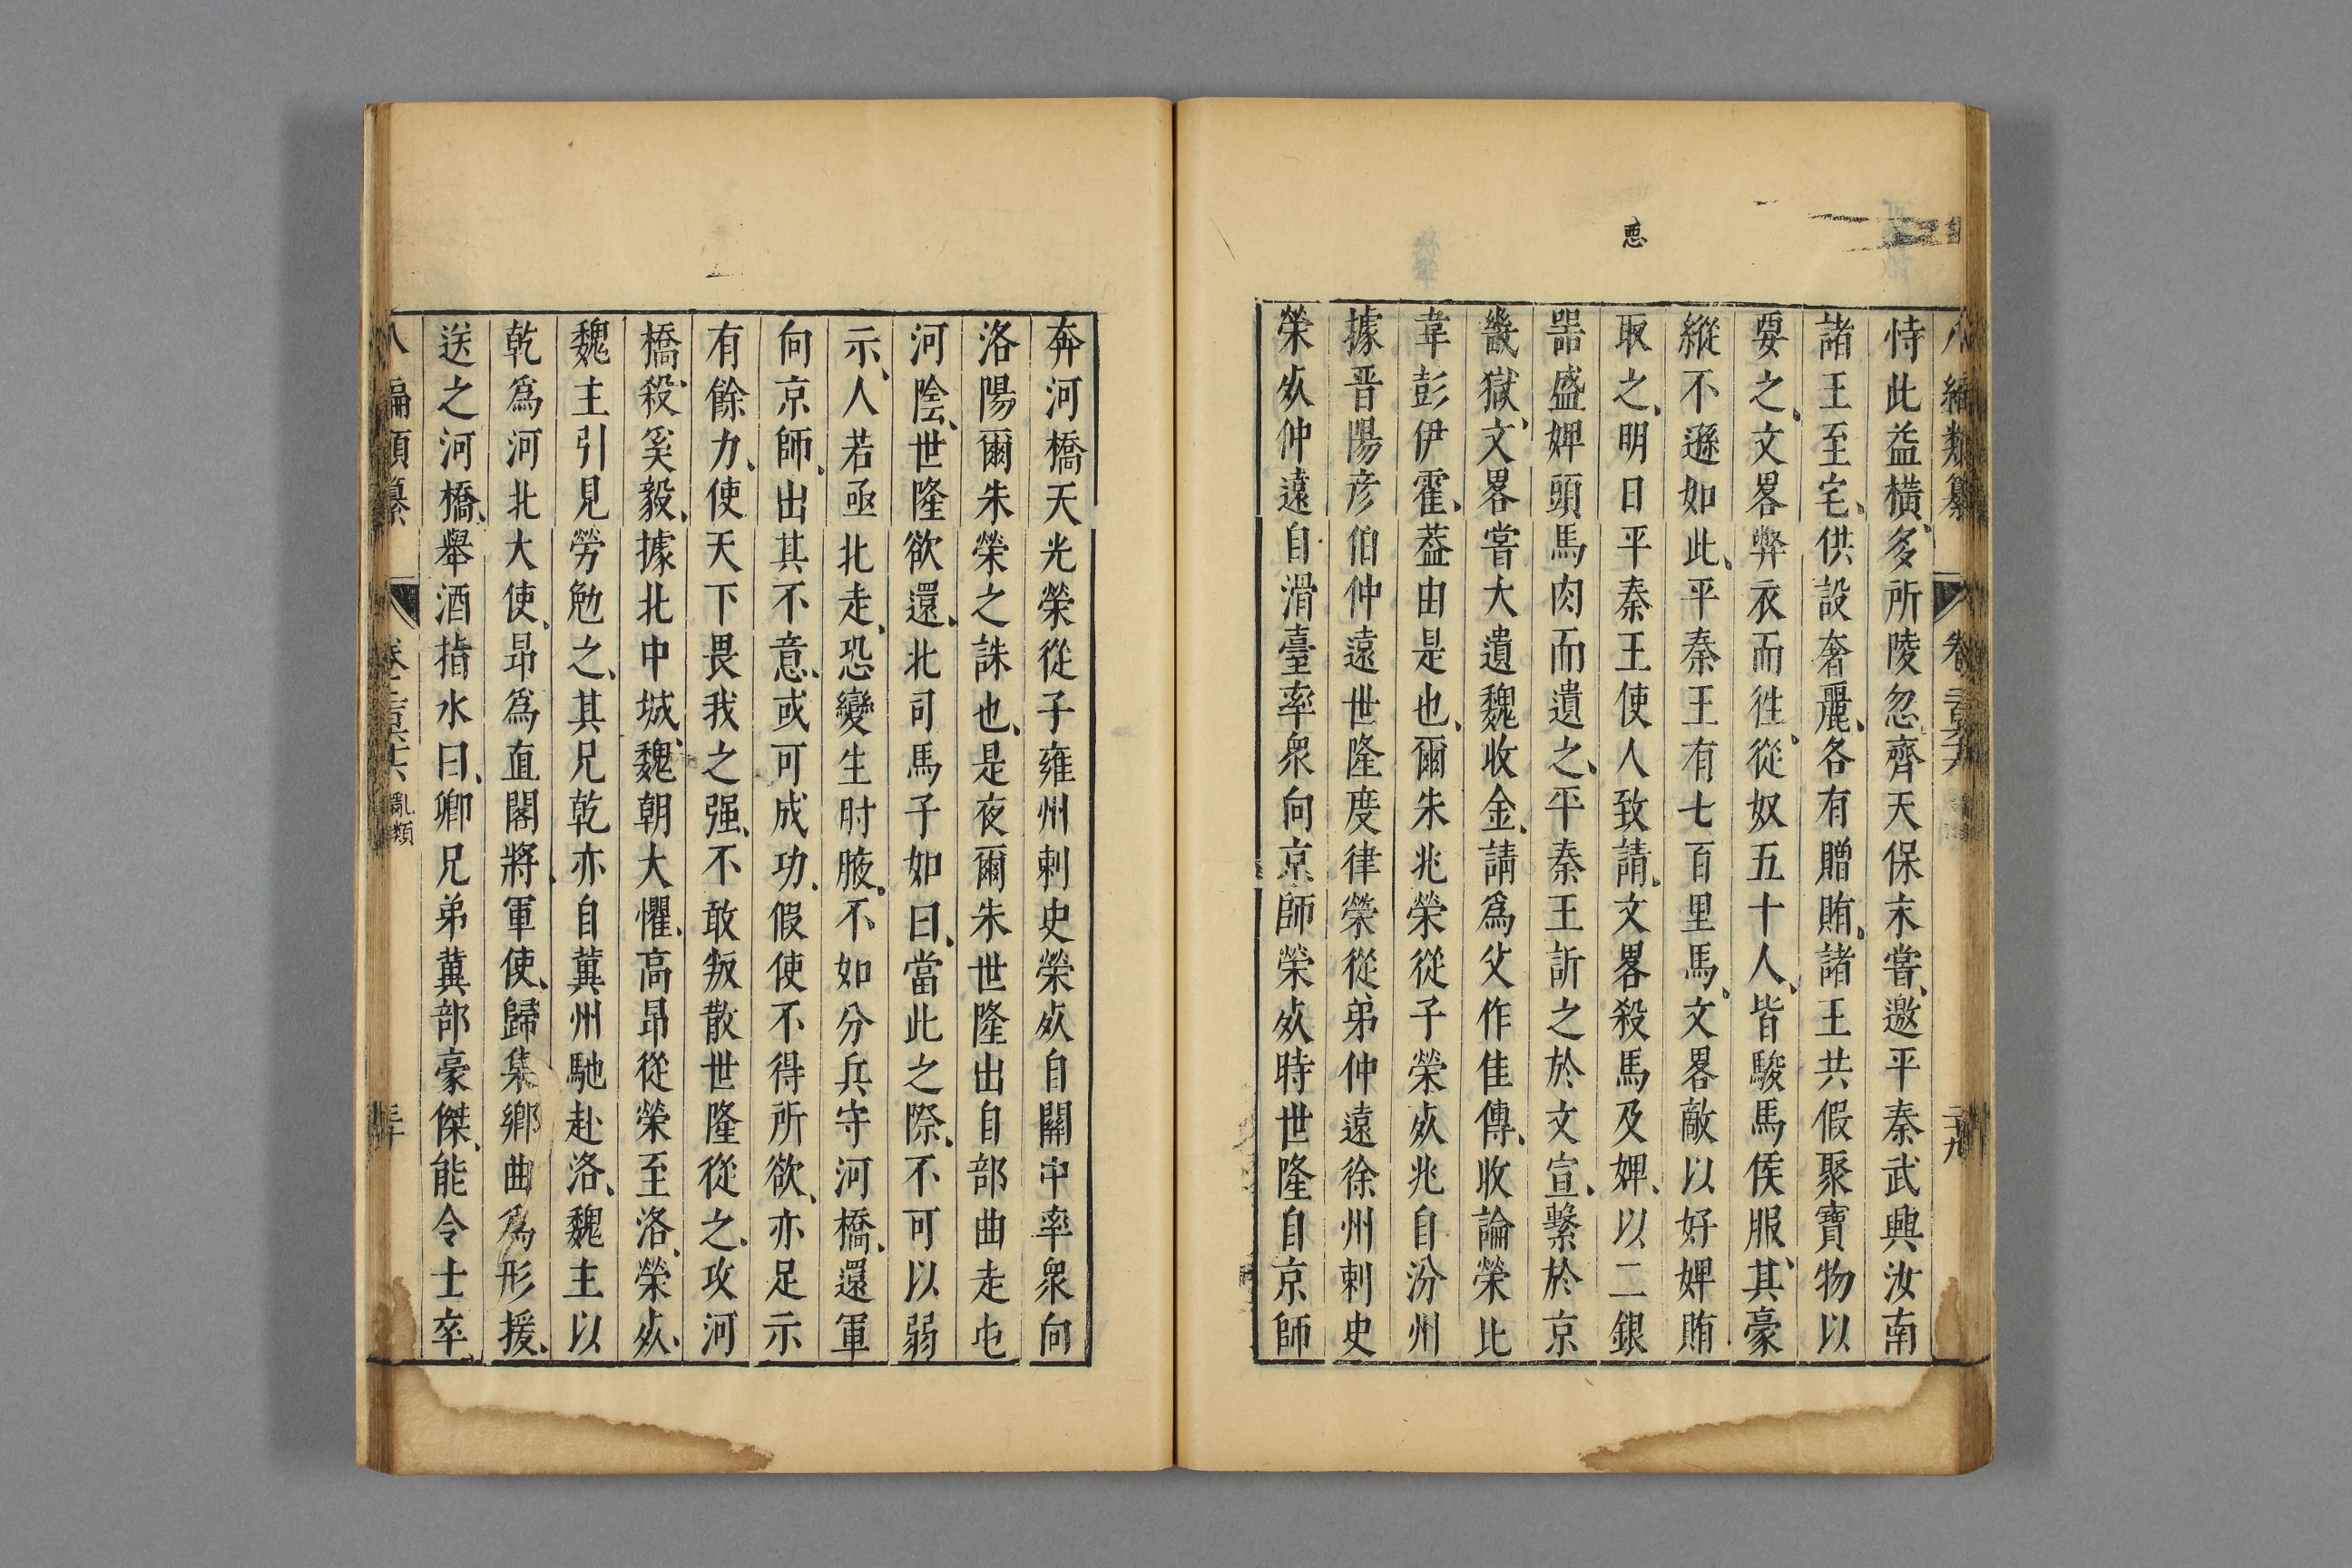 惡
八編類纂 卷 二十九
恃此益橫多所陵忽齊天保末嘗邀平秦武興汝南
諸王至宅供設奢麗各有贈賄諸王共假聚寶物以
要之文畧弊衣而徃從奴五十人皆駿馬侯服其豪
縱不遜如此平秦王有七百里馬文畧敵以好婢賭
取之明日平秦王使人致請文畧殺馬及婢以二銀
噐盛婢頭馬肉而遺之平秦王訴之於文宣繫於京
畿獄文畧嘗大遺魏收金請爲父作佳傳收論榮比
韋彭伊霍葢由是也爾朱兆榮從子榮歿兆自汾州
據晋陽彦伯仲遠世隆度律榮從弟仲遠徐州刺史
榮歿仲遠自滑臺率衆向京師榮歿時世隆自京師
奔河橋天光榮從子雍州刺史榮歿自關中率衆向
洛陽爾朱榮之誅也是夜爾朱世隆出自部曲走屯
河陰世隆欲還北司馬子如曰當此之際不可以弱
示人若亟北走恐變生肘腋不如分兵守河橋還軍
向京師出其不意或可成功假使不得所欲亦足示
有餘力使天下畏我之强不敢叛散世隆從之攻河
橋殺奚毅據北中城魏朝大懼高昂從榮至洛榮歿
魏主引見勞勉之其兄乾亦自冀州馳赴洛魏主以
乾爲河北大使昂爲直閣將軍使歸集鄉曲爲形援
送之河橋舉酒指水曰卿兄弟冀部豪傑能令士卒
八編類纂 卷 亂類 三十